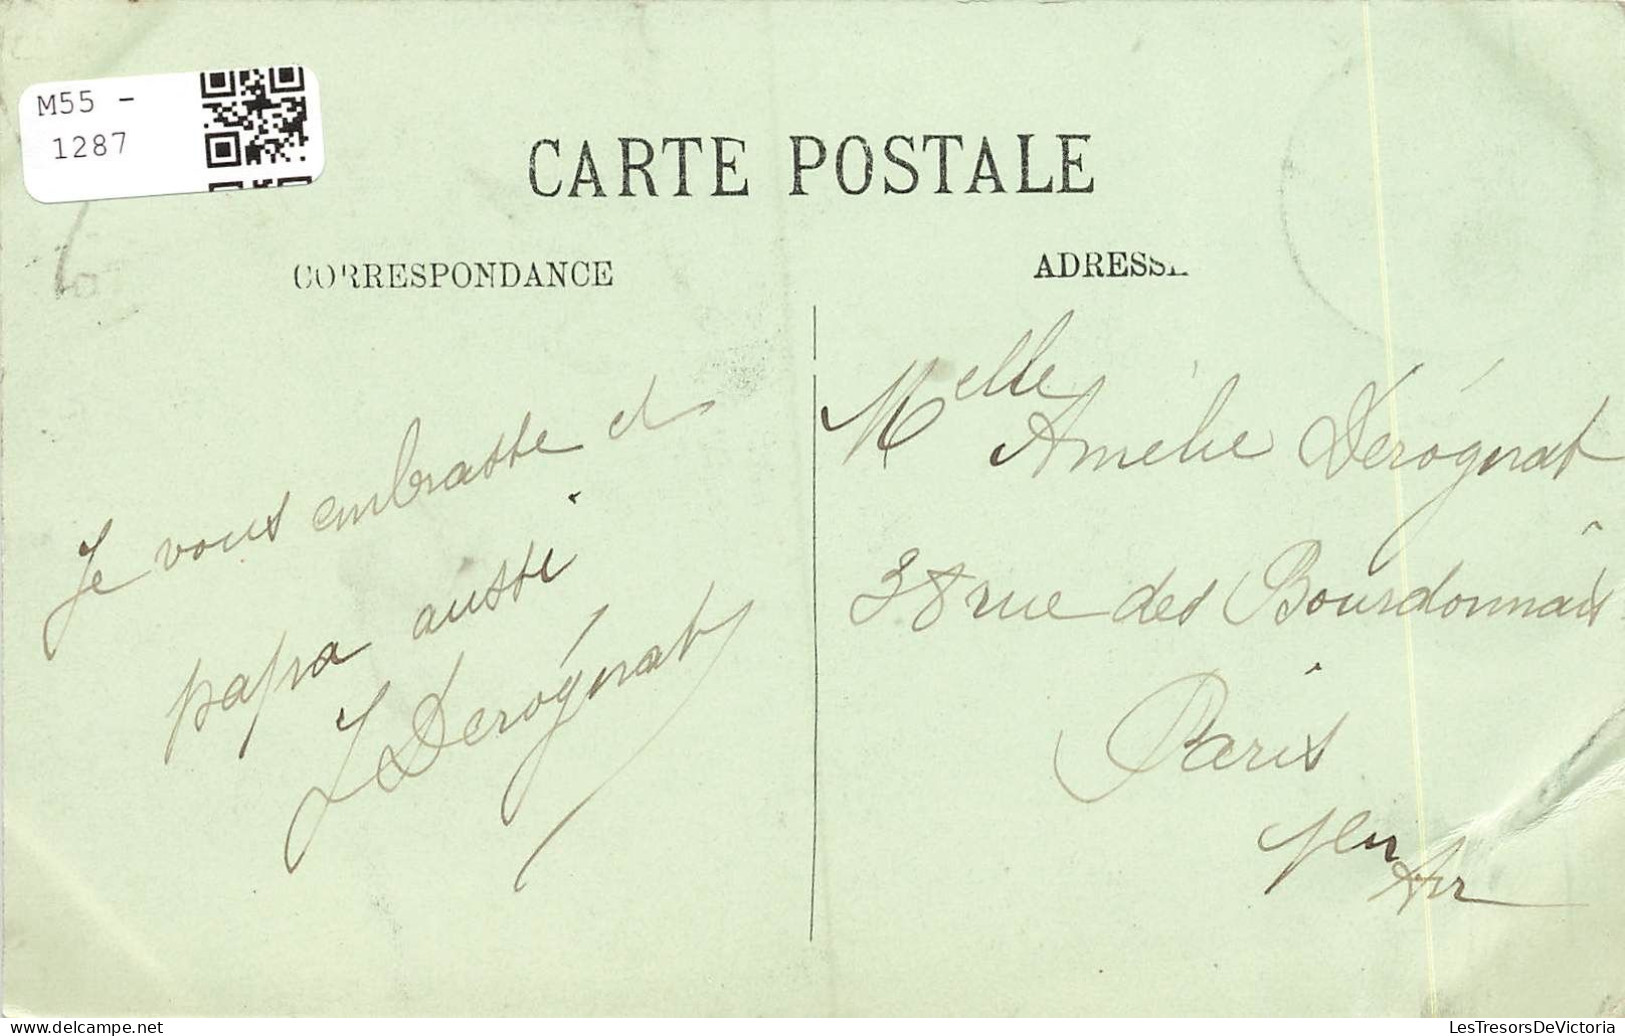 M55 -
1287
CARTE POSTALE
CORRESPONDANCE
ADRESSE
Je vous embrasse et
papa aussi
J Derognat
Melle Amélie Derognat
38 rue des Bourdonnais
Paris
1er Arr
LesTresorsDeVictoria